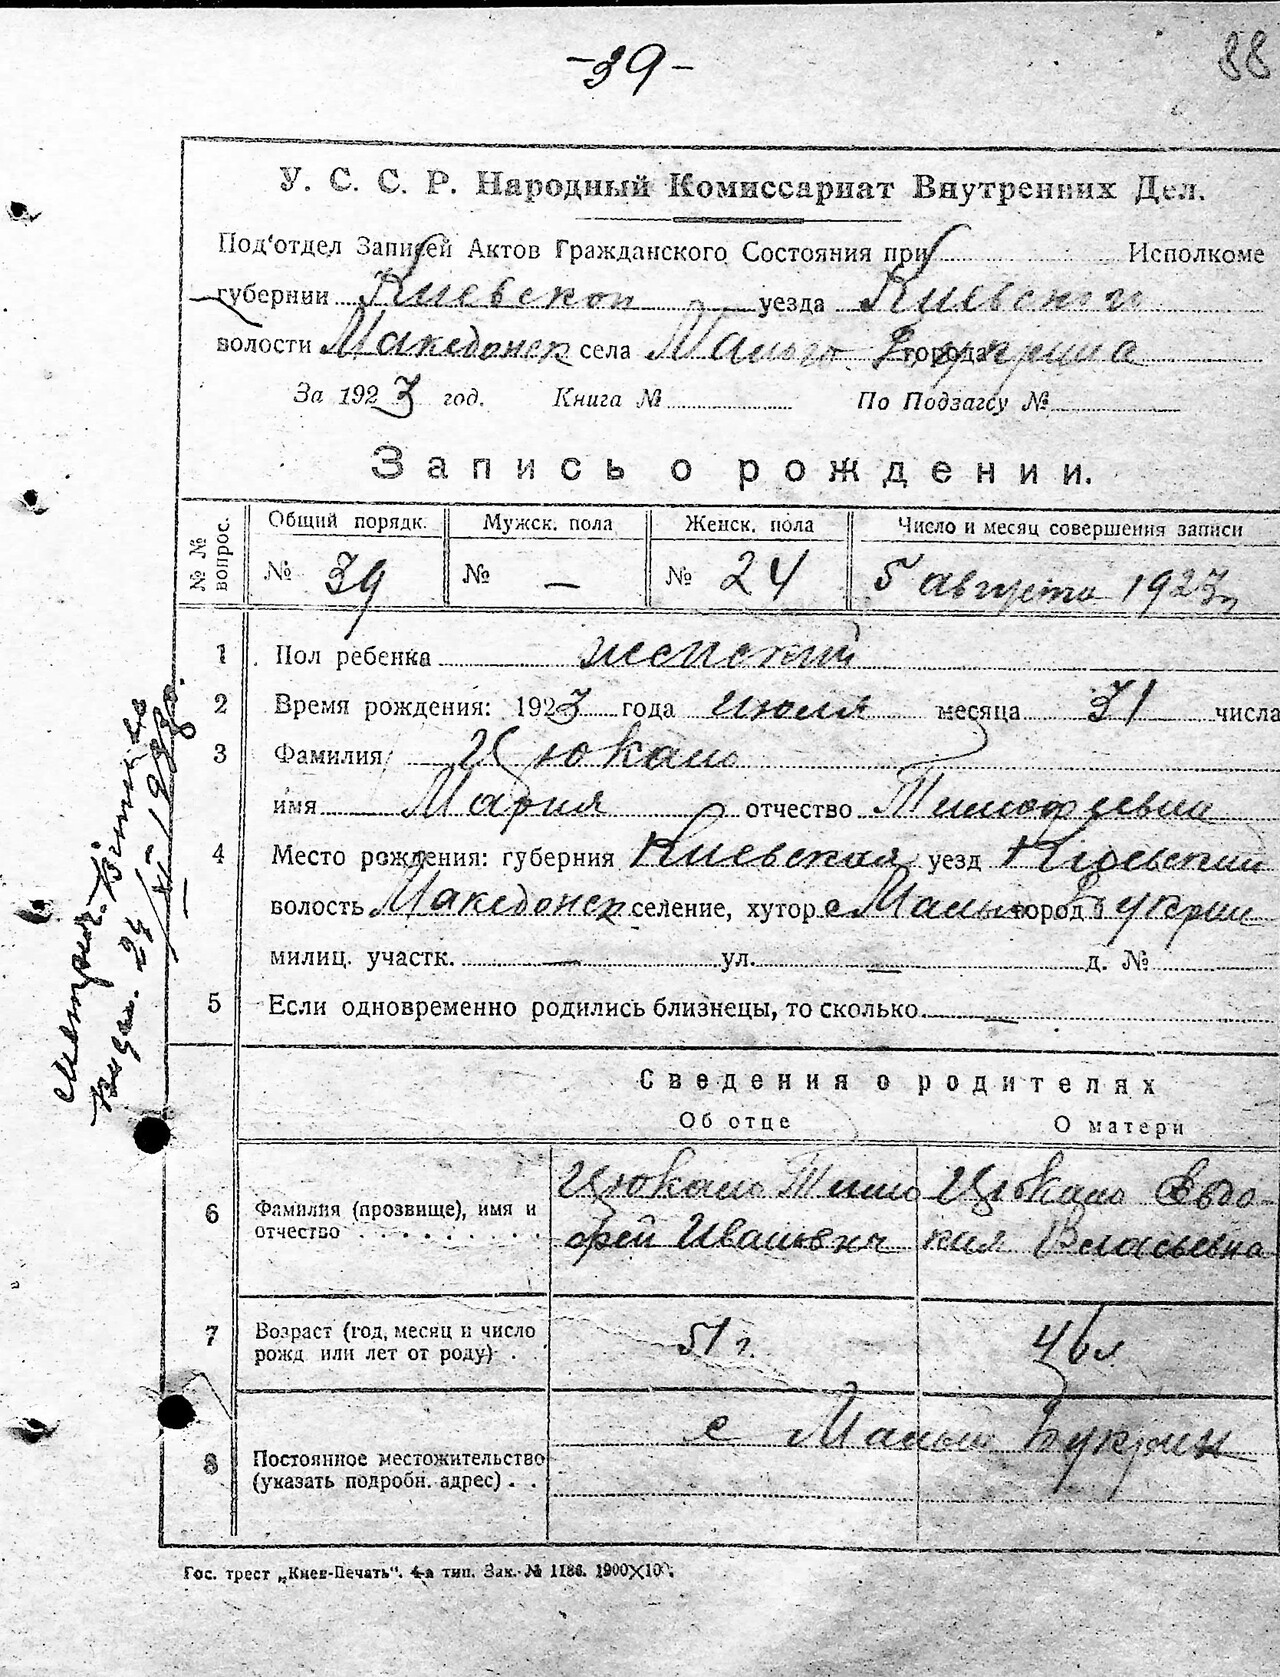 -39-
88
У. С. С. Р. Народный Комиссариат Внутренних Дел.
Под'отдел Записей Актов Гражданского Состояния при Исполкоме
губернии Киевской уезда Киевской
волости Македонск села Малого города Букрина
За 1923 год. Книга № По Подзагсу №
Запись о рождении.
№ № вопрос.
Общий порядк. Мужск. пола Женск. пола Число и месяц совершения записи
№ 39 № — № 24 5 августа 1923 г
1 Пол ребенка женский
2 Время рождения: 1923 года июля месяца 31 числа
3 Фамилия Цюкало
имя Мария отчество Тимофеевна
4 Место рождения: губерния Киевская уезд Киевский
волость Македонск селение, хутор с Малый город Букрин
милиц. участк. — ул. — д. №
5 Если одновременно родились близнецы, то сколько —
Сведения о родителях
Об отце О матери
Цюкало Тимо Цюкало Евдо-
6 Фамилия (прозвище), имя и
отчество фей Иванович кия Власьевна
7 Возраст (год, месяц и число
рожд или лет от роду) 51 г. 46 л
с Малый Букрин
8 Постоянное местожительство
(указать подробн. адрес)
Гос. трест „Киев-Печать". 4-я тип. Зак. № 1186. 1900×100.